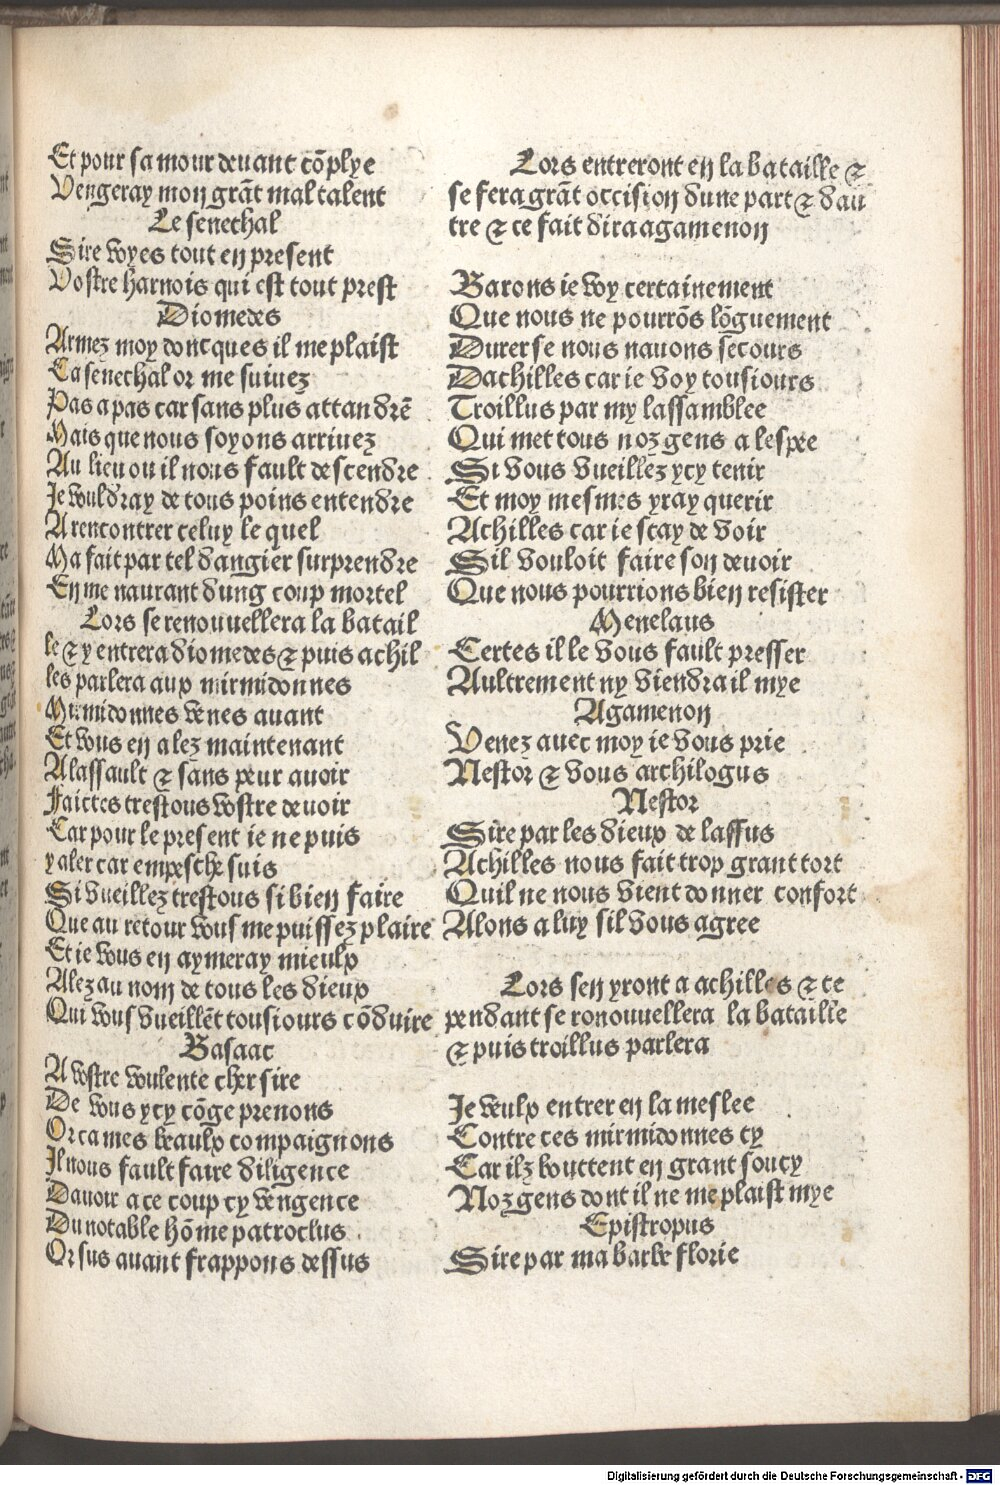 Et pour sa mour deuant cõplye
Vengeray mon grãt mal talent
Le senechal
Sire voyes tout en present
Vostre harnois qui est tout prest
Diomedes
Armez moy doncques il me plaist
Ca senechal or me suiuez
Pas a pas car sans plus attandrẽ
Mais que nous soyons arriuez
Au lieu ou il nous fault descendre
Je vouldray de tous poins entendre
A rencontrer celuy le quel
Ma fait par tel dangier surprendre
En me naurant dung coup mortel
Lors se renouuellera la batail
le & y entrera diomedes & puis achil
les parlera aux mirmidonnes
Mirmidonnes venes auant
Et vous en alez maintenant
A lassault & sans peur auoir
Faictes trestous vostre deuoir
Car pour le present ie ne puis
y aler car empesche suis
Si vueillez trestous si bien faire
Que au retour vous me puissez plaire
Et ie vous en aymeray mieulx
Alez au nom de tous les dieux
Qui vous vueillẽt tousiours cõduire
Basaac
A vostre voulente cher sire
De vous ycy cõge prenons
Or ca mes beaulx compaignons
Il nous fault faire diligence
Dauoir a ce coup cy vengence
Du notable hõme patroclus
Or sus auant frappons dessus
Lors entreront en la bataille &
se fera grãt occision dune part & dau
tre & ce fait dira agamenon
Barons ie voy certainement
Que nous ne pourrõs lõguement
Durer se nous nauons secours
Dachilles car ie voy tousiours
Troillus par my lassamblee
Qui met tous noz gens a lespee
Si vous vueillez ycy tenir
Et moy mesmes yray querir
Achilles car ie scay de voir
Sil vouloit faire son deuoir
Que nous pourrions bien resister
Menelaus
Certes il le vous fault presser
Aultrement ny viendra il mye
Agamenon
Venez auec moy ie vous prie
Nestor & vous archilogus
Nestor
Sire par les dieux de lassus
Achilles nous fait trop grant tort
Quil ne nous vient donner confort
Alons a luy sil vous agree
Lors sen yront a achilles & ce
pendant se ronouuellera la bataille
& puis troillus parlera
Je veulx entrer en la meslee
Contre ces mirmidonnes cy
Car ilz bouttent en grant soucy
Noz gens dont il ne me plaist mye
Epistropus
Sire par ma barbe florie
Digitalisierung gefördert durch die Deutsche Forschungsgemeinschaft - DFG